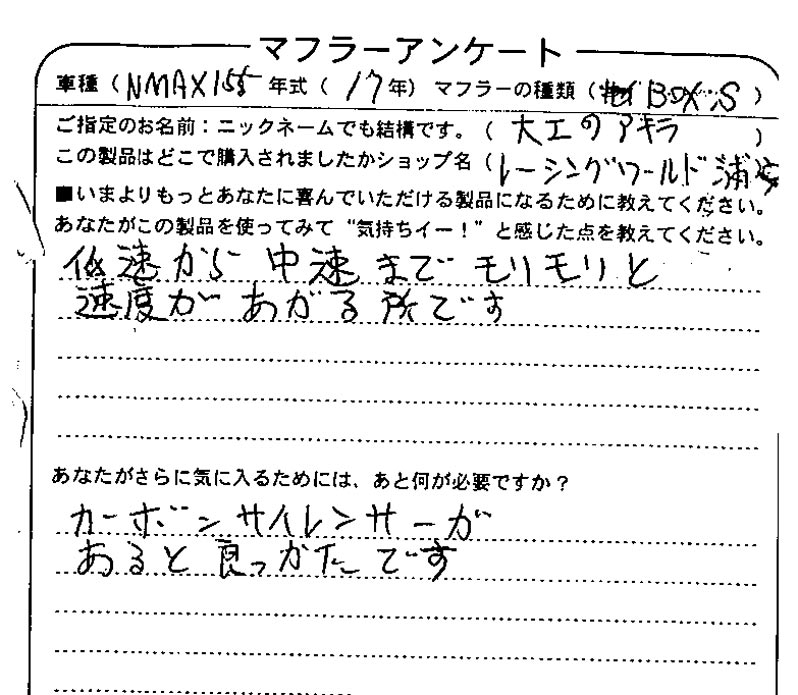 マフラーアンケート
車種（NMAX155 年式（17年）マフラーの種類（BOX-S）
ご指定のお名前：ニックネームでも結構です。（大工のアキラ）
この製品はどこで購入されましたかショップ名（レーシングワールド浦安
■いまよりもっとあなたに喜んでいただける製品になるために教えてください。
あなたがこの製品を使ってみて“気持ちイー！”と感じた点を教えてください。
低速から中速までモリモリと
速度があがる所です
あなたがさらに気に入るためには、あと何が必要ですか？
カーボンサイレンサーが
あると良っかたです